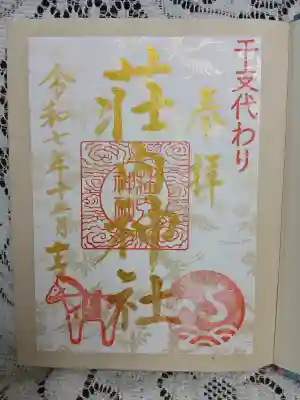 干支代わり
奉拝
荘内神社
令和七年十二月